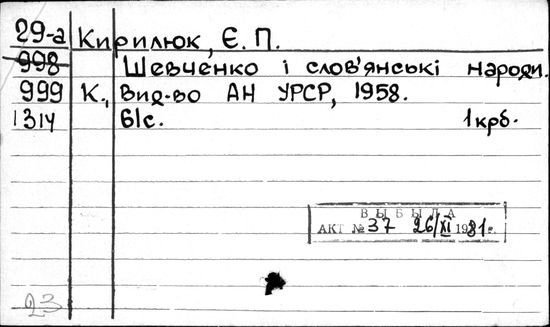 29-а Кирилюк, Є. П.
998 Шевченко і слов'янські народи.
999 К., Вид-во АН УРСР, 1958.
1314 61с. 1крб.
ВЫБЫЛА
АКТ № 37 26/XI 1981г.
23